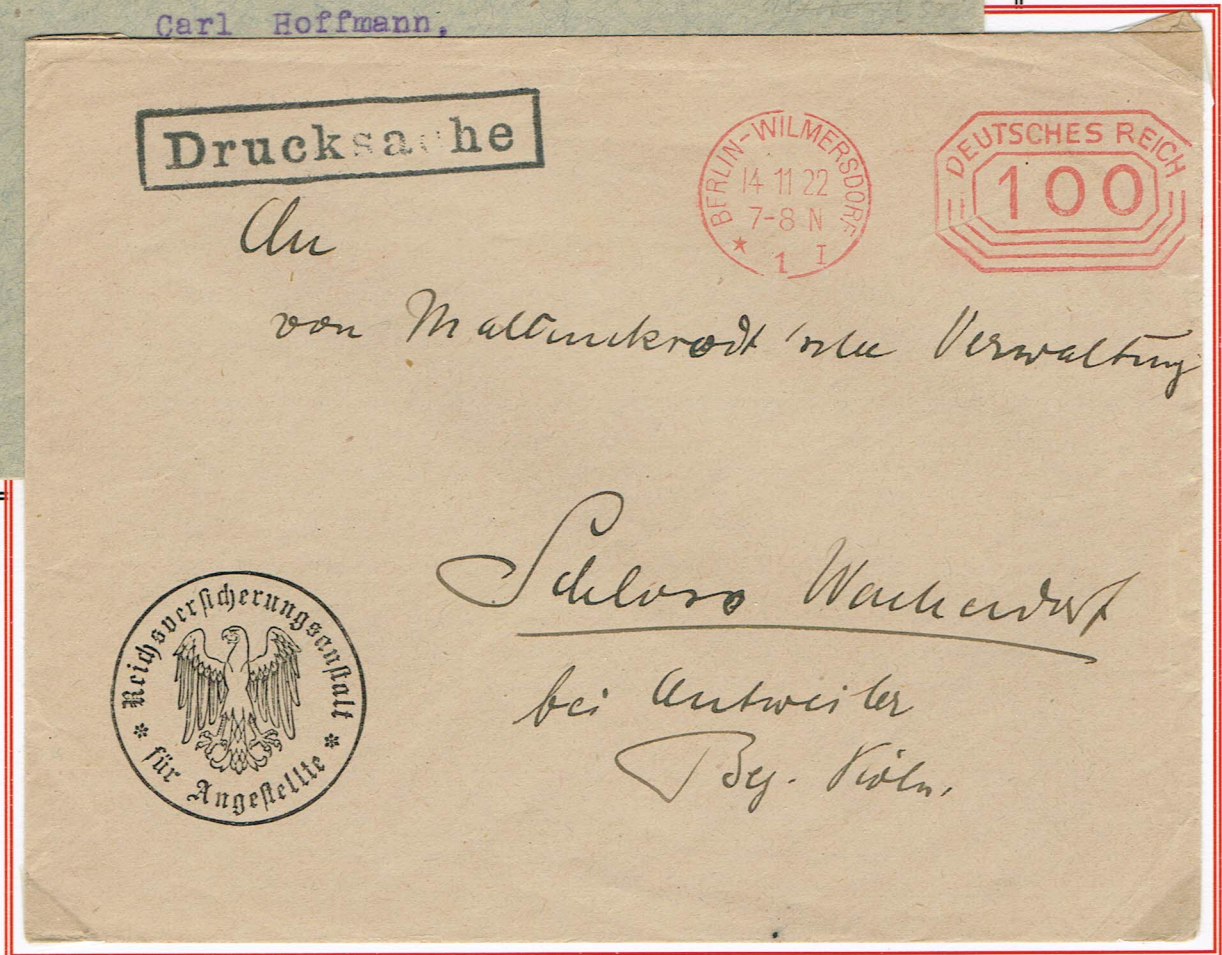 Carl Hoffmann,
Drucksache
BERLIN-WILMERSDORF
14 11 22
7-8 N
* 1 I
DEUTSCHES REICH
100
An
von Mallinckrodt'sche Verwaltung
Schloss Wachendorf
bei Antweiler
Bez. Köln.
Reichsversicherungsanstalt
* für Angestellte *